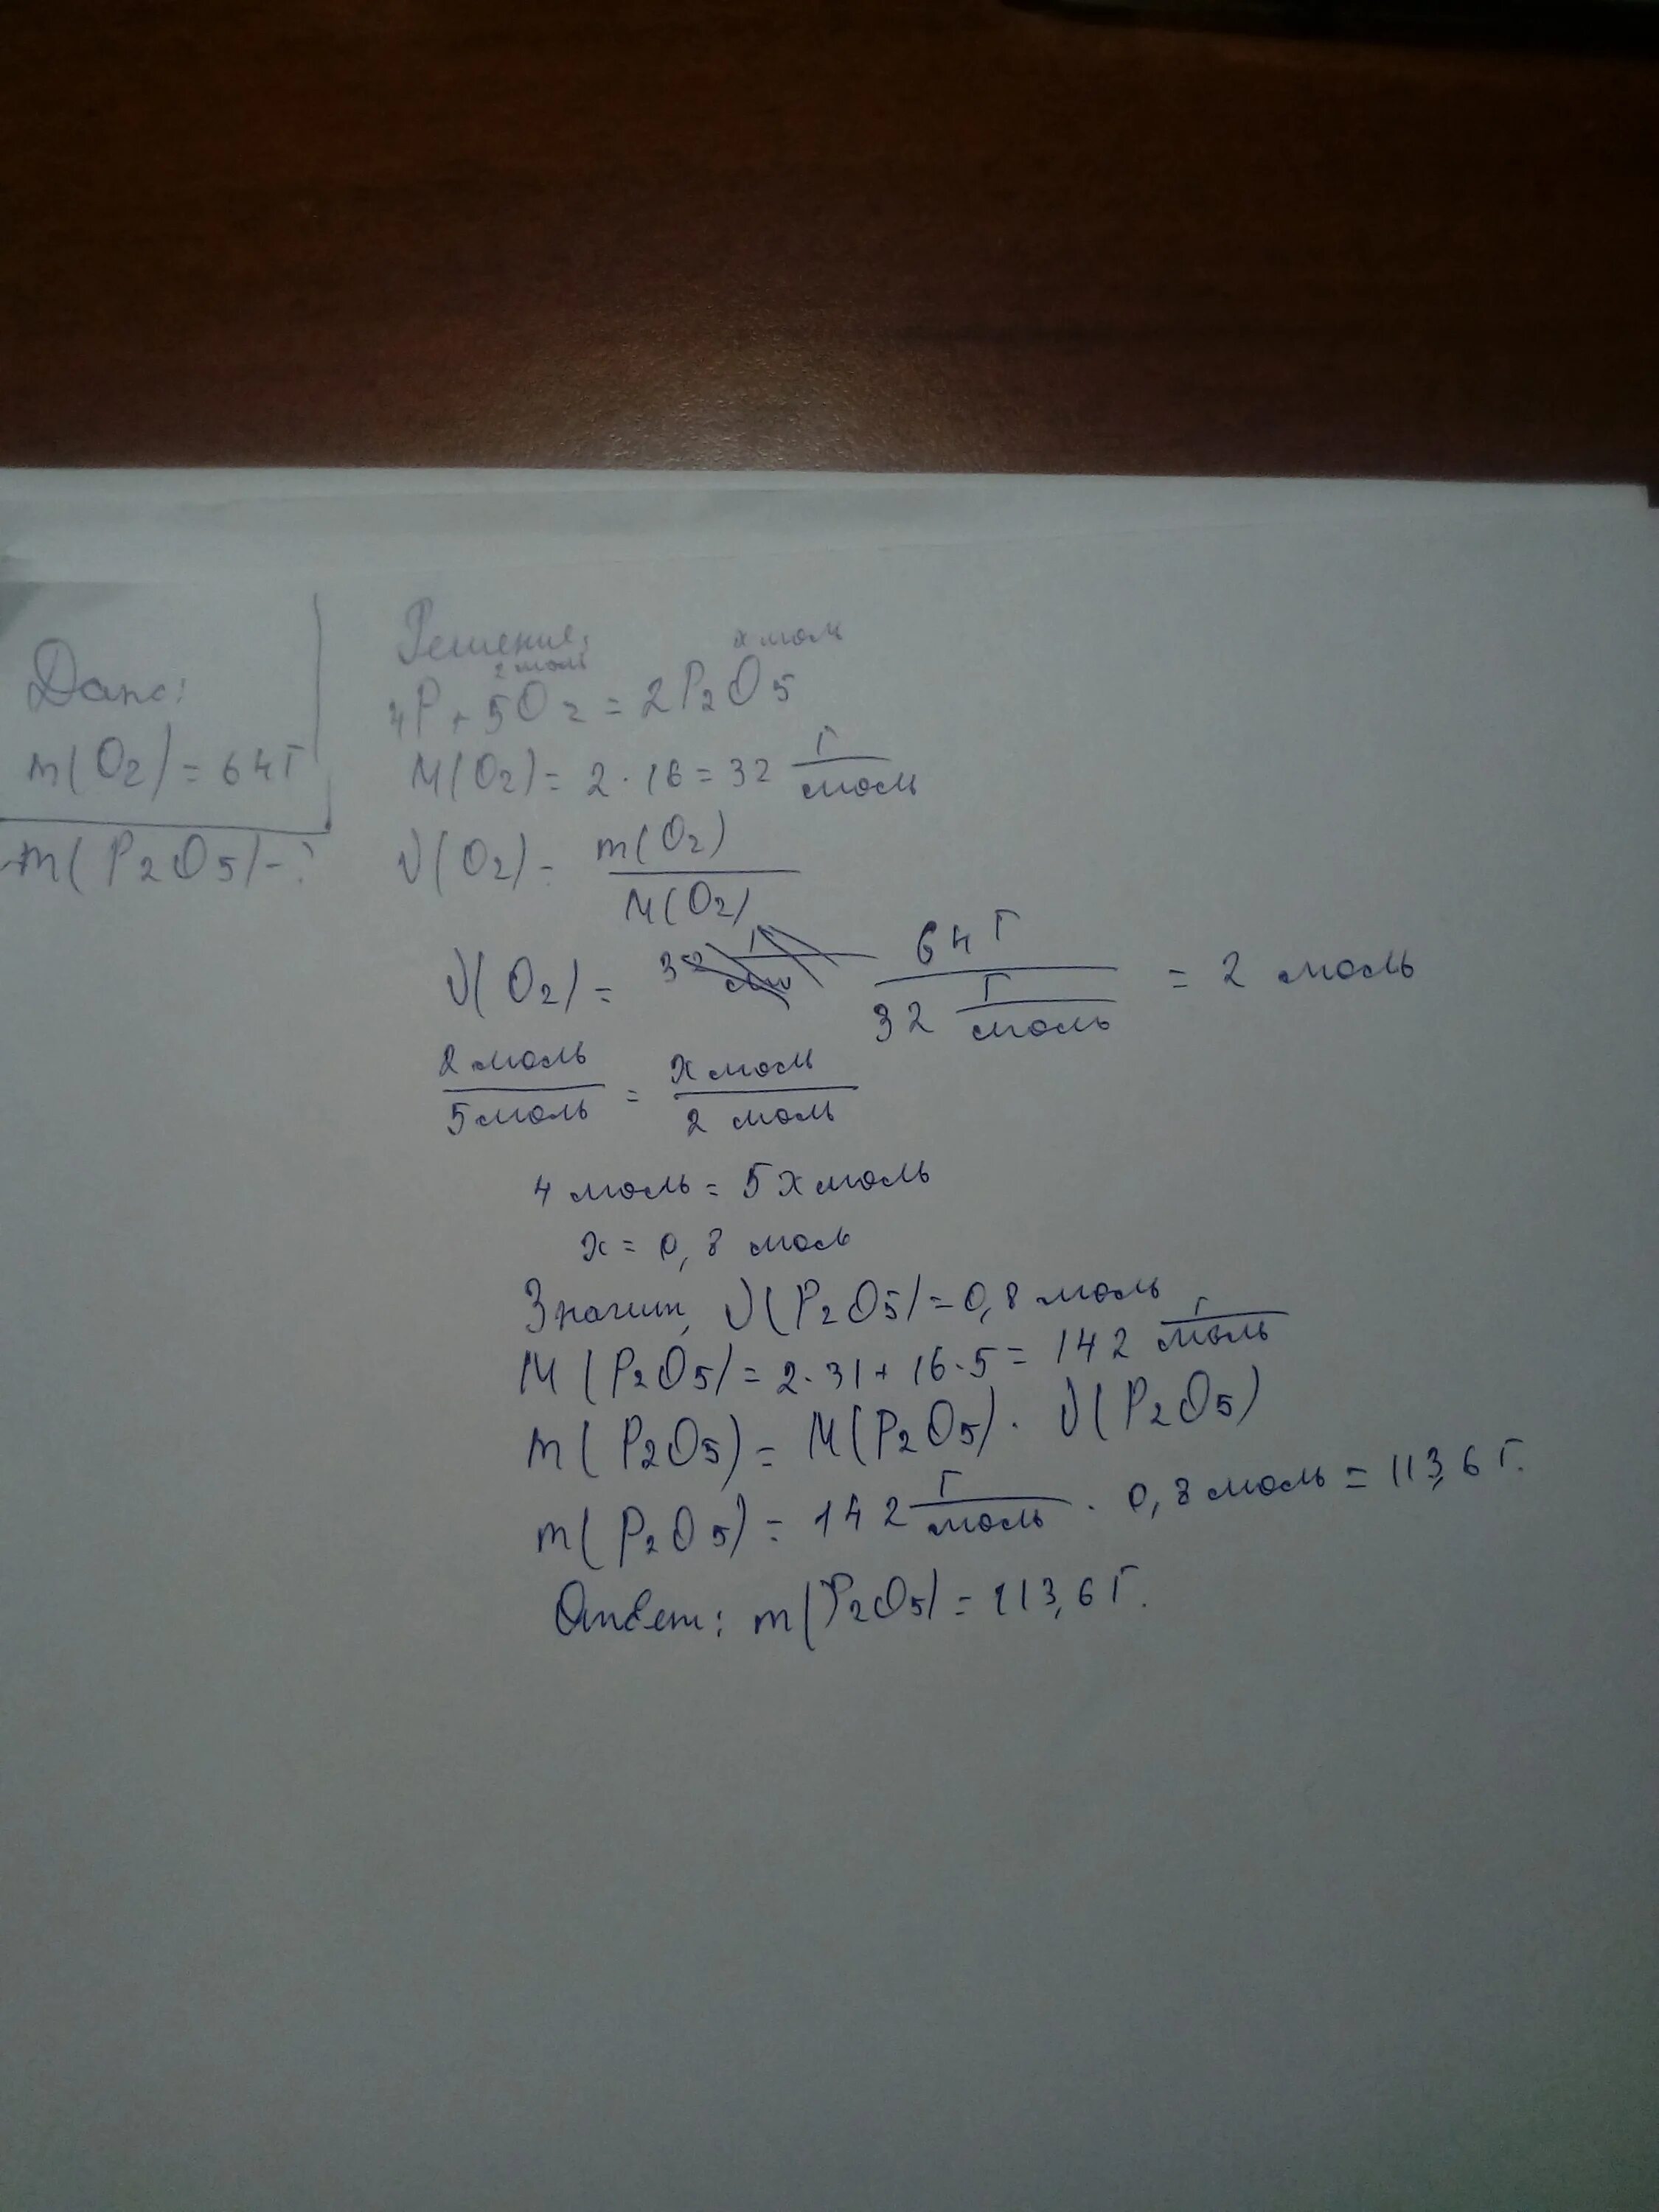 Дано:
m(O2) = 64 г
m(P2O5) - ?
Решение:
2 моль x моль
4P + 5O2 = 2P2O5
M(O2) = 2 · 16 = 32 г/моль
ν(O2) = m(O2)/M(O2)
ν(O2) = 64 г/32 г/моль = 2 моль
2 моль/5 моль = x моль/2 моль
4 моль = 5x моль
x = 0,8 моль
Значит, ν(P2O5) = 0,8 моль
M(P2O5) = 2·31 + 16·5 = 142 г/моль
m(P2O5) = M(P2O5) · ν(P2O5)
m(P2O5) = 142 г/моль · 0,8 моль = 113,6 г.
Ответ: m(P2O5) = 113,6 г.